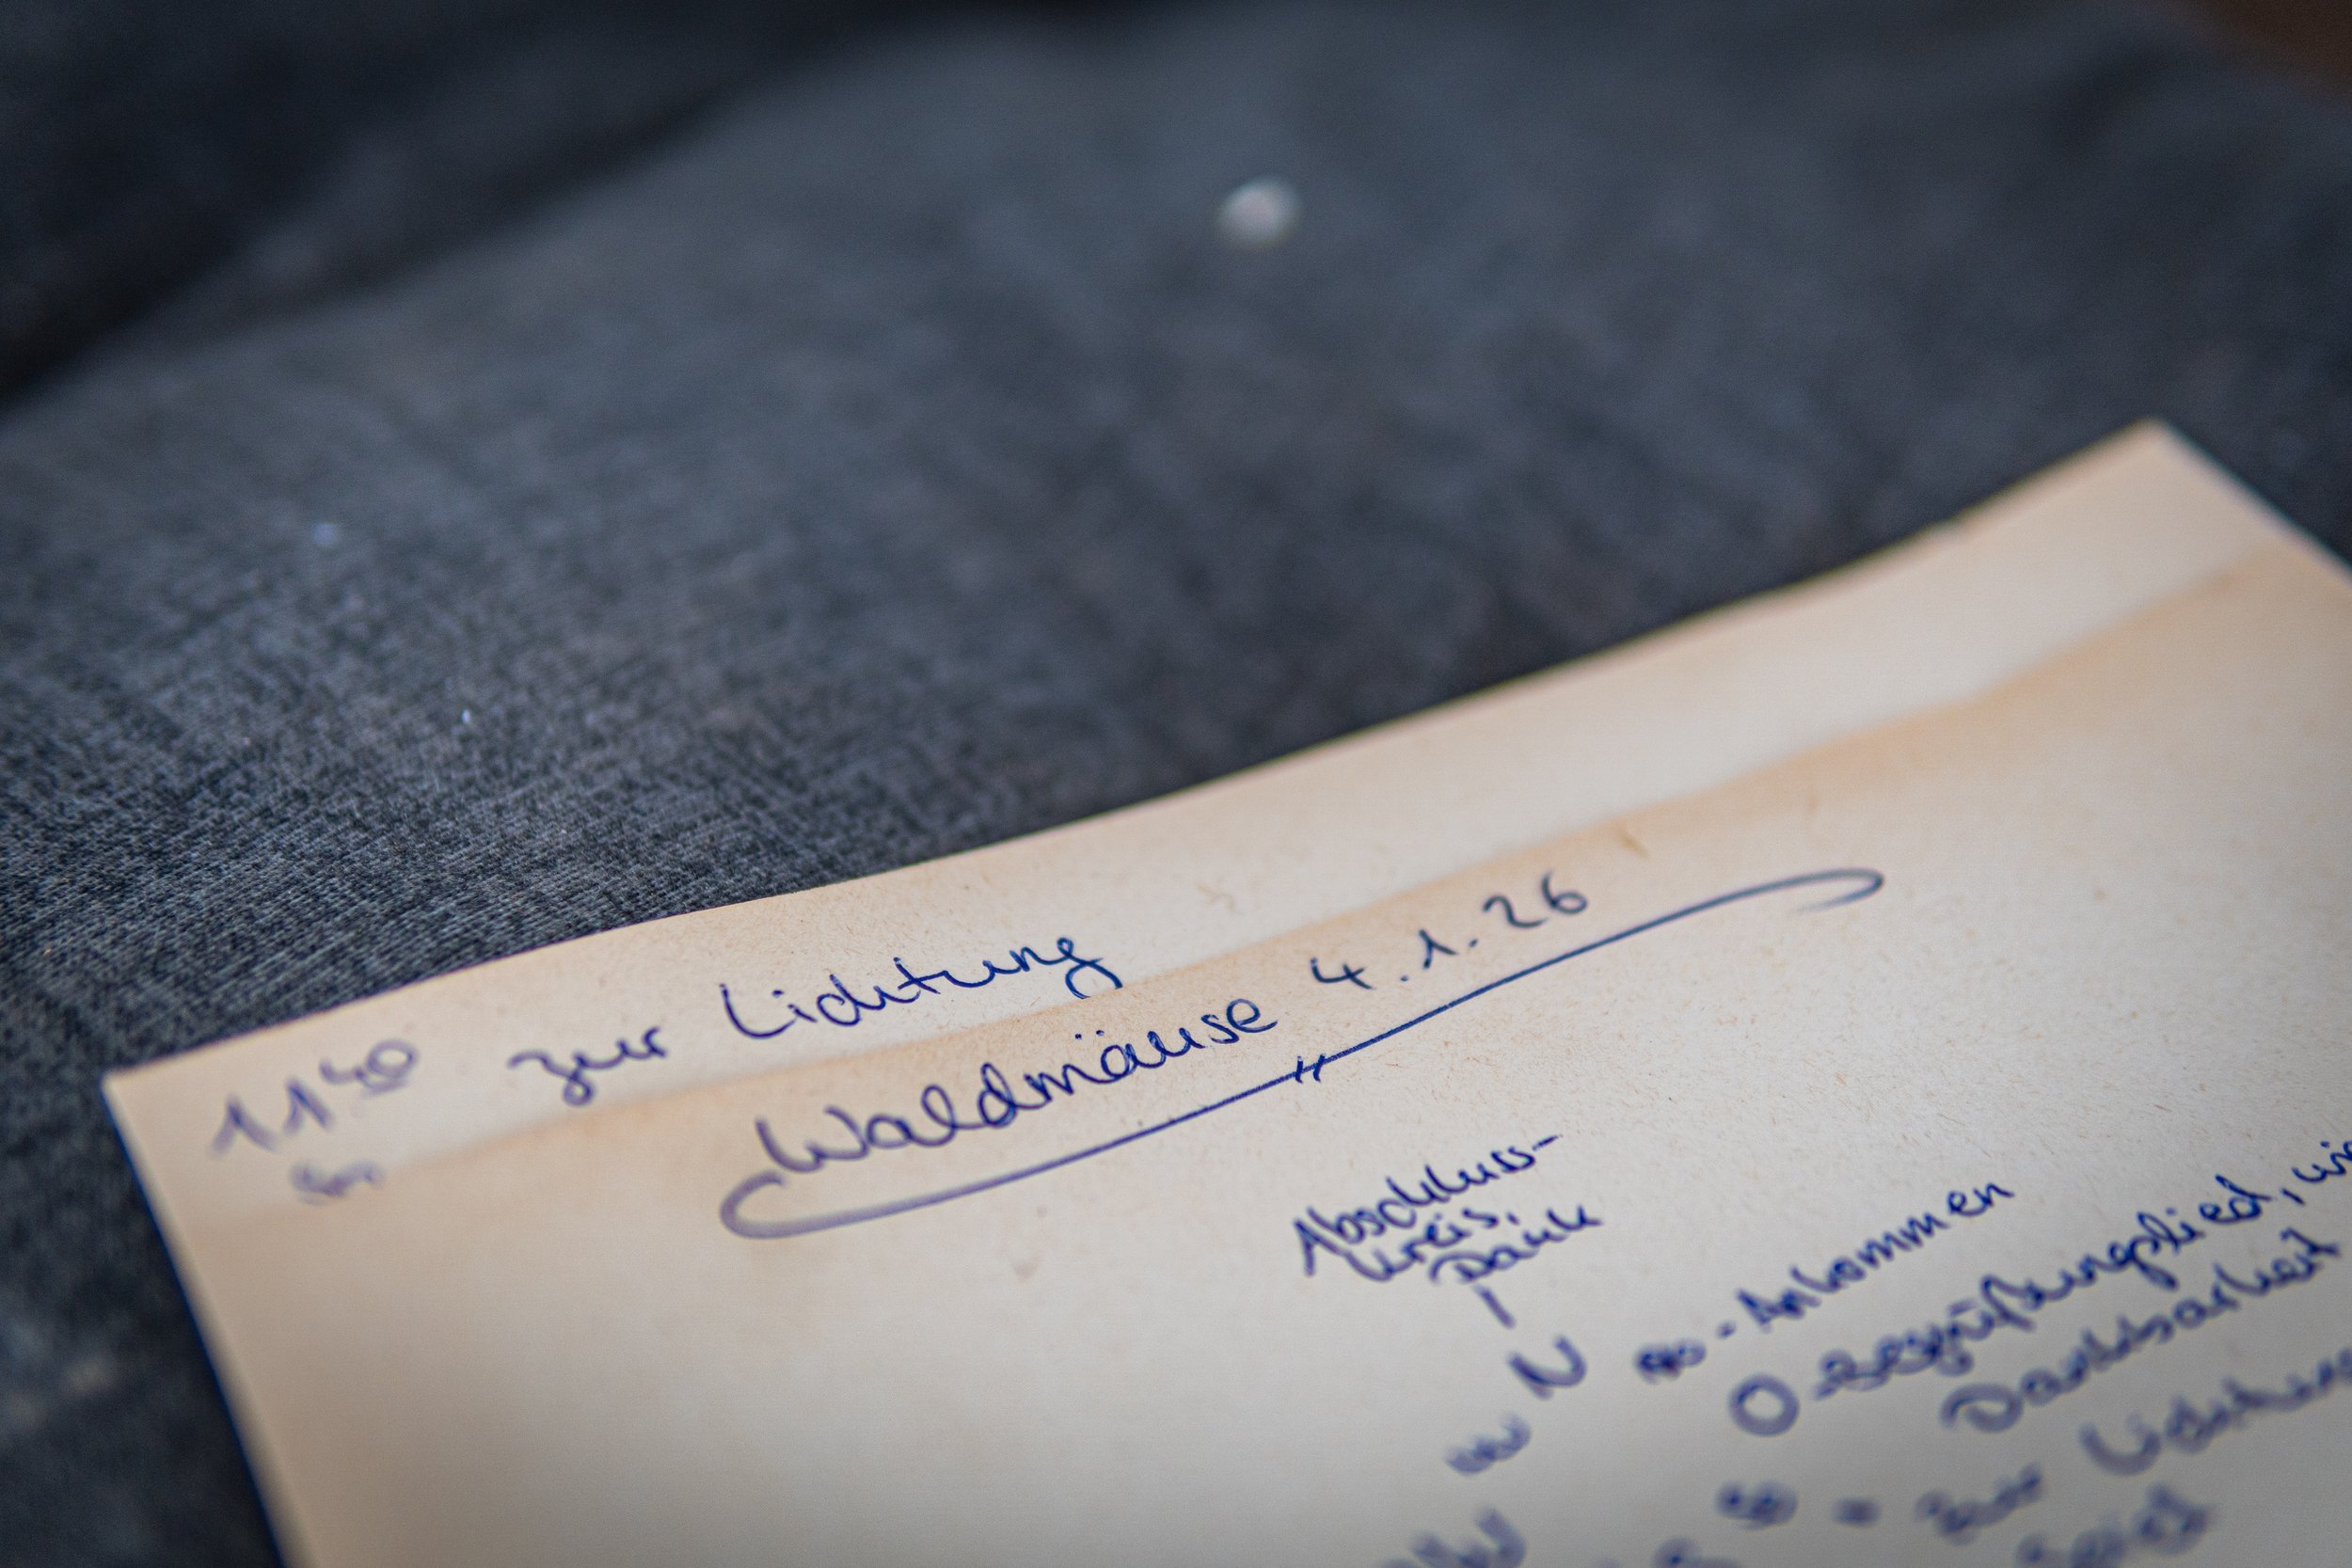 11⁴⁰ zur Lichtung
Waldmäuse 4.1.26
Abschluss-
kreis,
Dank
N
NO - Ankommen
O - Begrüßungslied,
Dankbarkeit
SO - zur
Spiel